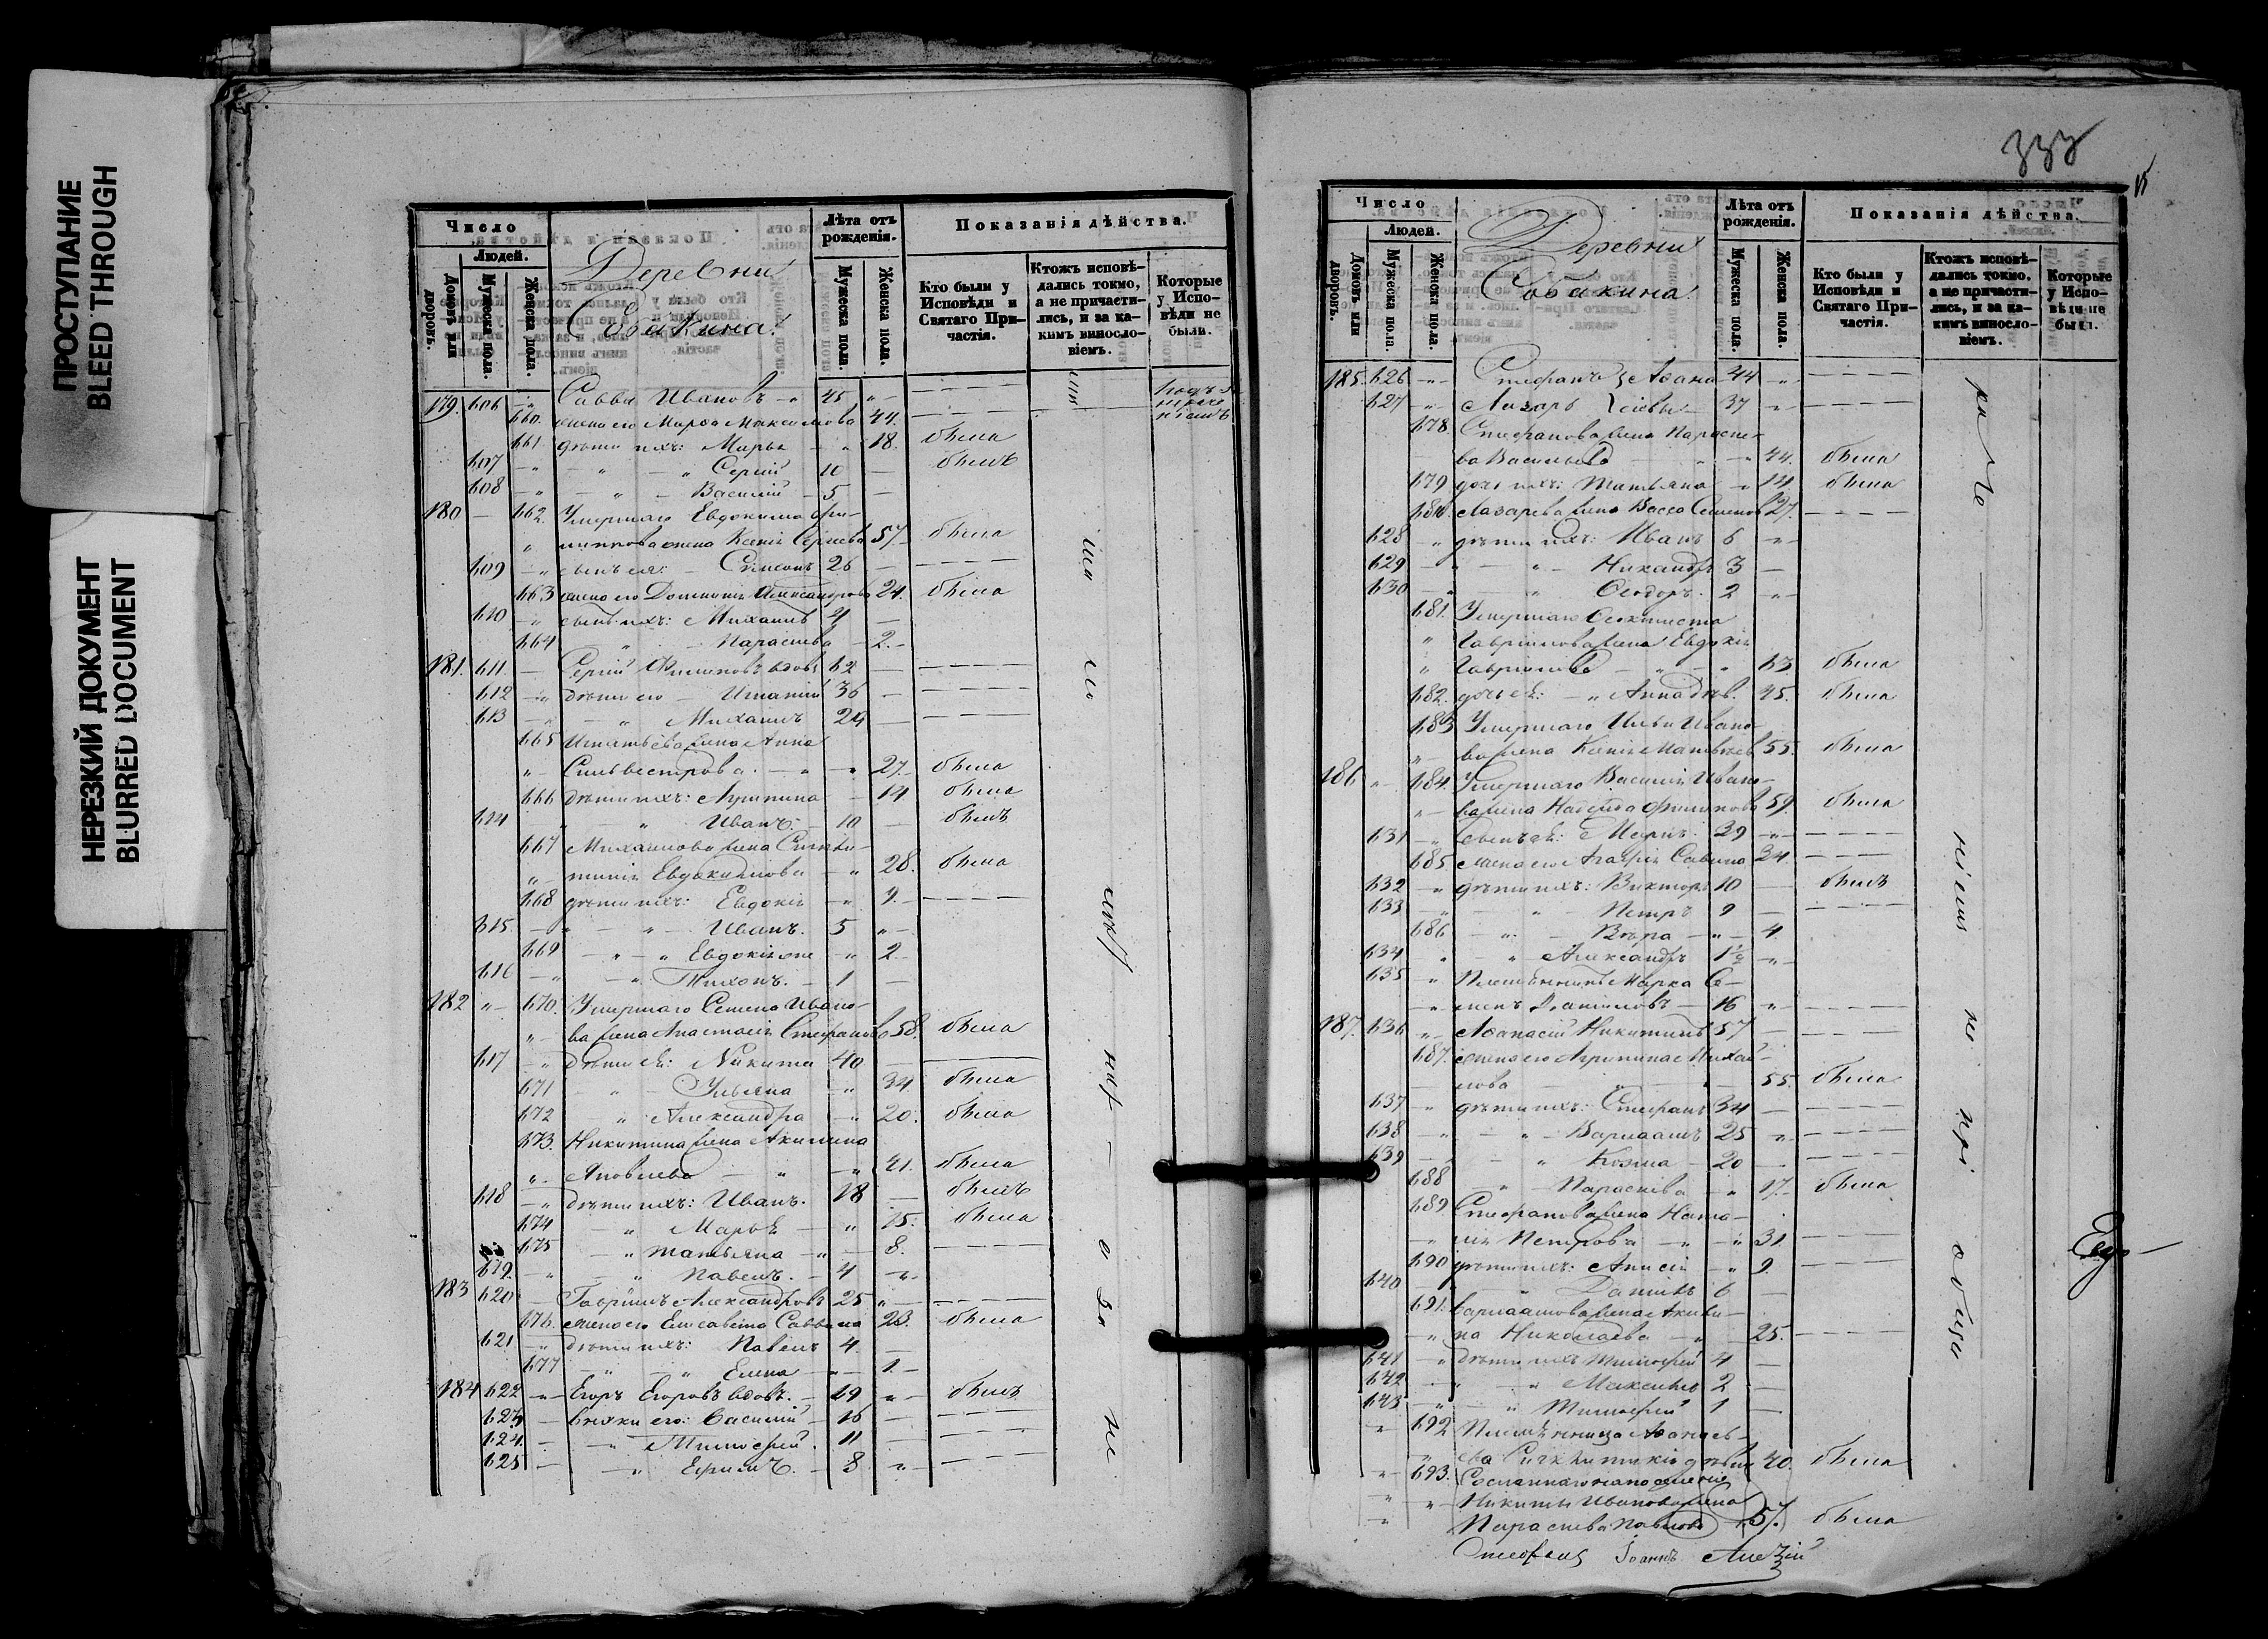 ПРОСТУПАНИЕ
BLEED THROUGH
НЕРЕЗКИЙ ДОКУМЕНТ
BLURRED DOCUMENT
Число
Людей.
Домовъ или дворовъ.
Мужеска пола.
Женска пола.
Деревни
Собакина.
Лѣта отъ рожденія.
Мужеска пола.
Женска пола.
Показанія дѣйства.
Кто были у Исповѣди и Святаго Причастія.
Ктожъ исповѣдались токмо, а не причастились, и за какимъ винословіемъ.
Которые у Исповѣди не были.
179. 606 Савва Ивановъ 45
660. жена его Марѳа Максимова 44.
661 дѣти ихъ: Марья 18. была
607 Сергій 10 былъ
608 Василій 5
180 662. Умершаго Евдокима Фи-
липпова жена Ксенія Сергіева 57. была
609 сынъ ея: Симеонъ 26
663 жена его Домника Александрова 24. была
610 сынъ ихъ: Михаилъ 4
664 Параскева 2.
181. 611 Сергій Филиповъ вдовъ 62
612 дѣти его Игнатій 36
613 Михаилъ 24
665 Игнатьева жена Анна
Сильвестрова 27. была
666 дѣти ихъ: Агрипина 14 была
614 Иванъ. 10 былъ
667 Михаилова жена Синкли-
тикія Евдокимова 28. была
668 дѣти ихъ: Евдокія 9.
615. Иванъ. 5
669 Евдокія 2.
616 Тихонъ. 1
182 670. Умершаго Семена Ивано-
ва жена Анастасія Стефанова 58. была
617 дѣти ея: Никита 40
671 Ульяна 34 была
672 Александра 20. была
673. Никитина жена Акилина
Яковлева 41. была
618 дѣти ихъ: Иванъ. 18 былъ
674 Марья 15. была
675 Татьяна 8.
619. Павелъ. 4
183 620 Гавріилъ Александровъ 25
676. жена его Елисавета Саввина 23. была
621 дѣти ихъ: Павелъ 4.
677 Елена 1
184 622 Егоръ Егоровъ вдовъ. 49 былъ
623 внуки его: Василій 16
624. Тимоѳей. 11
625 Ефимъ. 8
337
Число
Людей.
Домовъ или дворовъ.
Мужеска пола.
Женска пола.
Деревни
Собакина.
Лѣта отъ рожденія.
Мужеска пола.
Женска пола.
Показанія дѣйства.
Кто были у Исповѣди и Святаго Причастія.
Ктожъ исповѣдались токмо, а не причастились, и за какимъ винословіемъ.
Которые у Исповѣди не были.
185. 626 Стефанъ Аѳана- 44
627 Лазарь сіевы 37
678 Стефанова жена Параске-
ва Васильева 44. была
679 дочь ихъ: Татьяна 14. была
680. Лазарева жена Васса Семенова 27.
628 дѣти ихъ: Иванъ 6
629 Никандръ 3
630 Ѳеодоръ. 2
681. Умершаго Ѳеоктиста
Гавріилова жена Евдокія
Гавріилова 63 была
682. дочь ея: Анна дѣв. 45. была
683 Умершаго Ильи Ивано-
ва жена Ксенія Матвѣева 55. была
186 684. Умершаго Василія Ивано-
ва жена Надежда Филипова 59. была
631 сынъ ея: Маркъ. 39
685. жена его Агафія Савина 34
632 дѣти ихъ: Викторъ 10 былъ
633 Петръ 9
686 Вѣра 4
634 Александръ 1½
635 Племянникъ Марка Се-
менъ Даниловъ 16
187. 636 Аѳанасій Никитинъ 57
687. жена его Агрипина Михай-
лова 55. была
637 дѣти ихъ: Стефанъ 34
638 Варлаамъ 25
639 Козма 20
688 Параскева 17. была
689 Стефанова жена Ната-
лія Петрова 31.
690 дѣти ихъ: Анисія 9
640 Даніилъ 6
691. Варлаамова жена Акили-
на Николаева 25.
641 дѣти ихъ Тимоѳей 4
642 Максимъ 2
643 Тимоѳей 1
692 Племянница Аѳанась-
ева Синклитикія дѣвица 40. была
693. Сосланнаго на поселеніе
Никиты Иванова жена
Параскева Павлова 57. была
Іоаннъ